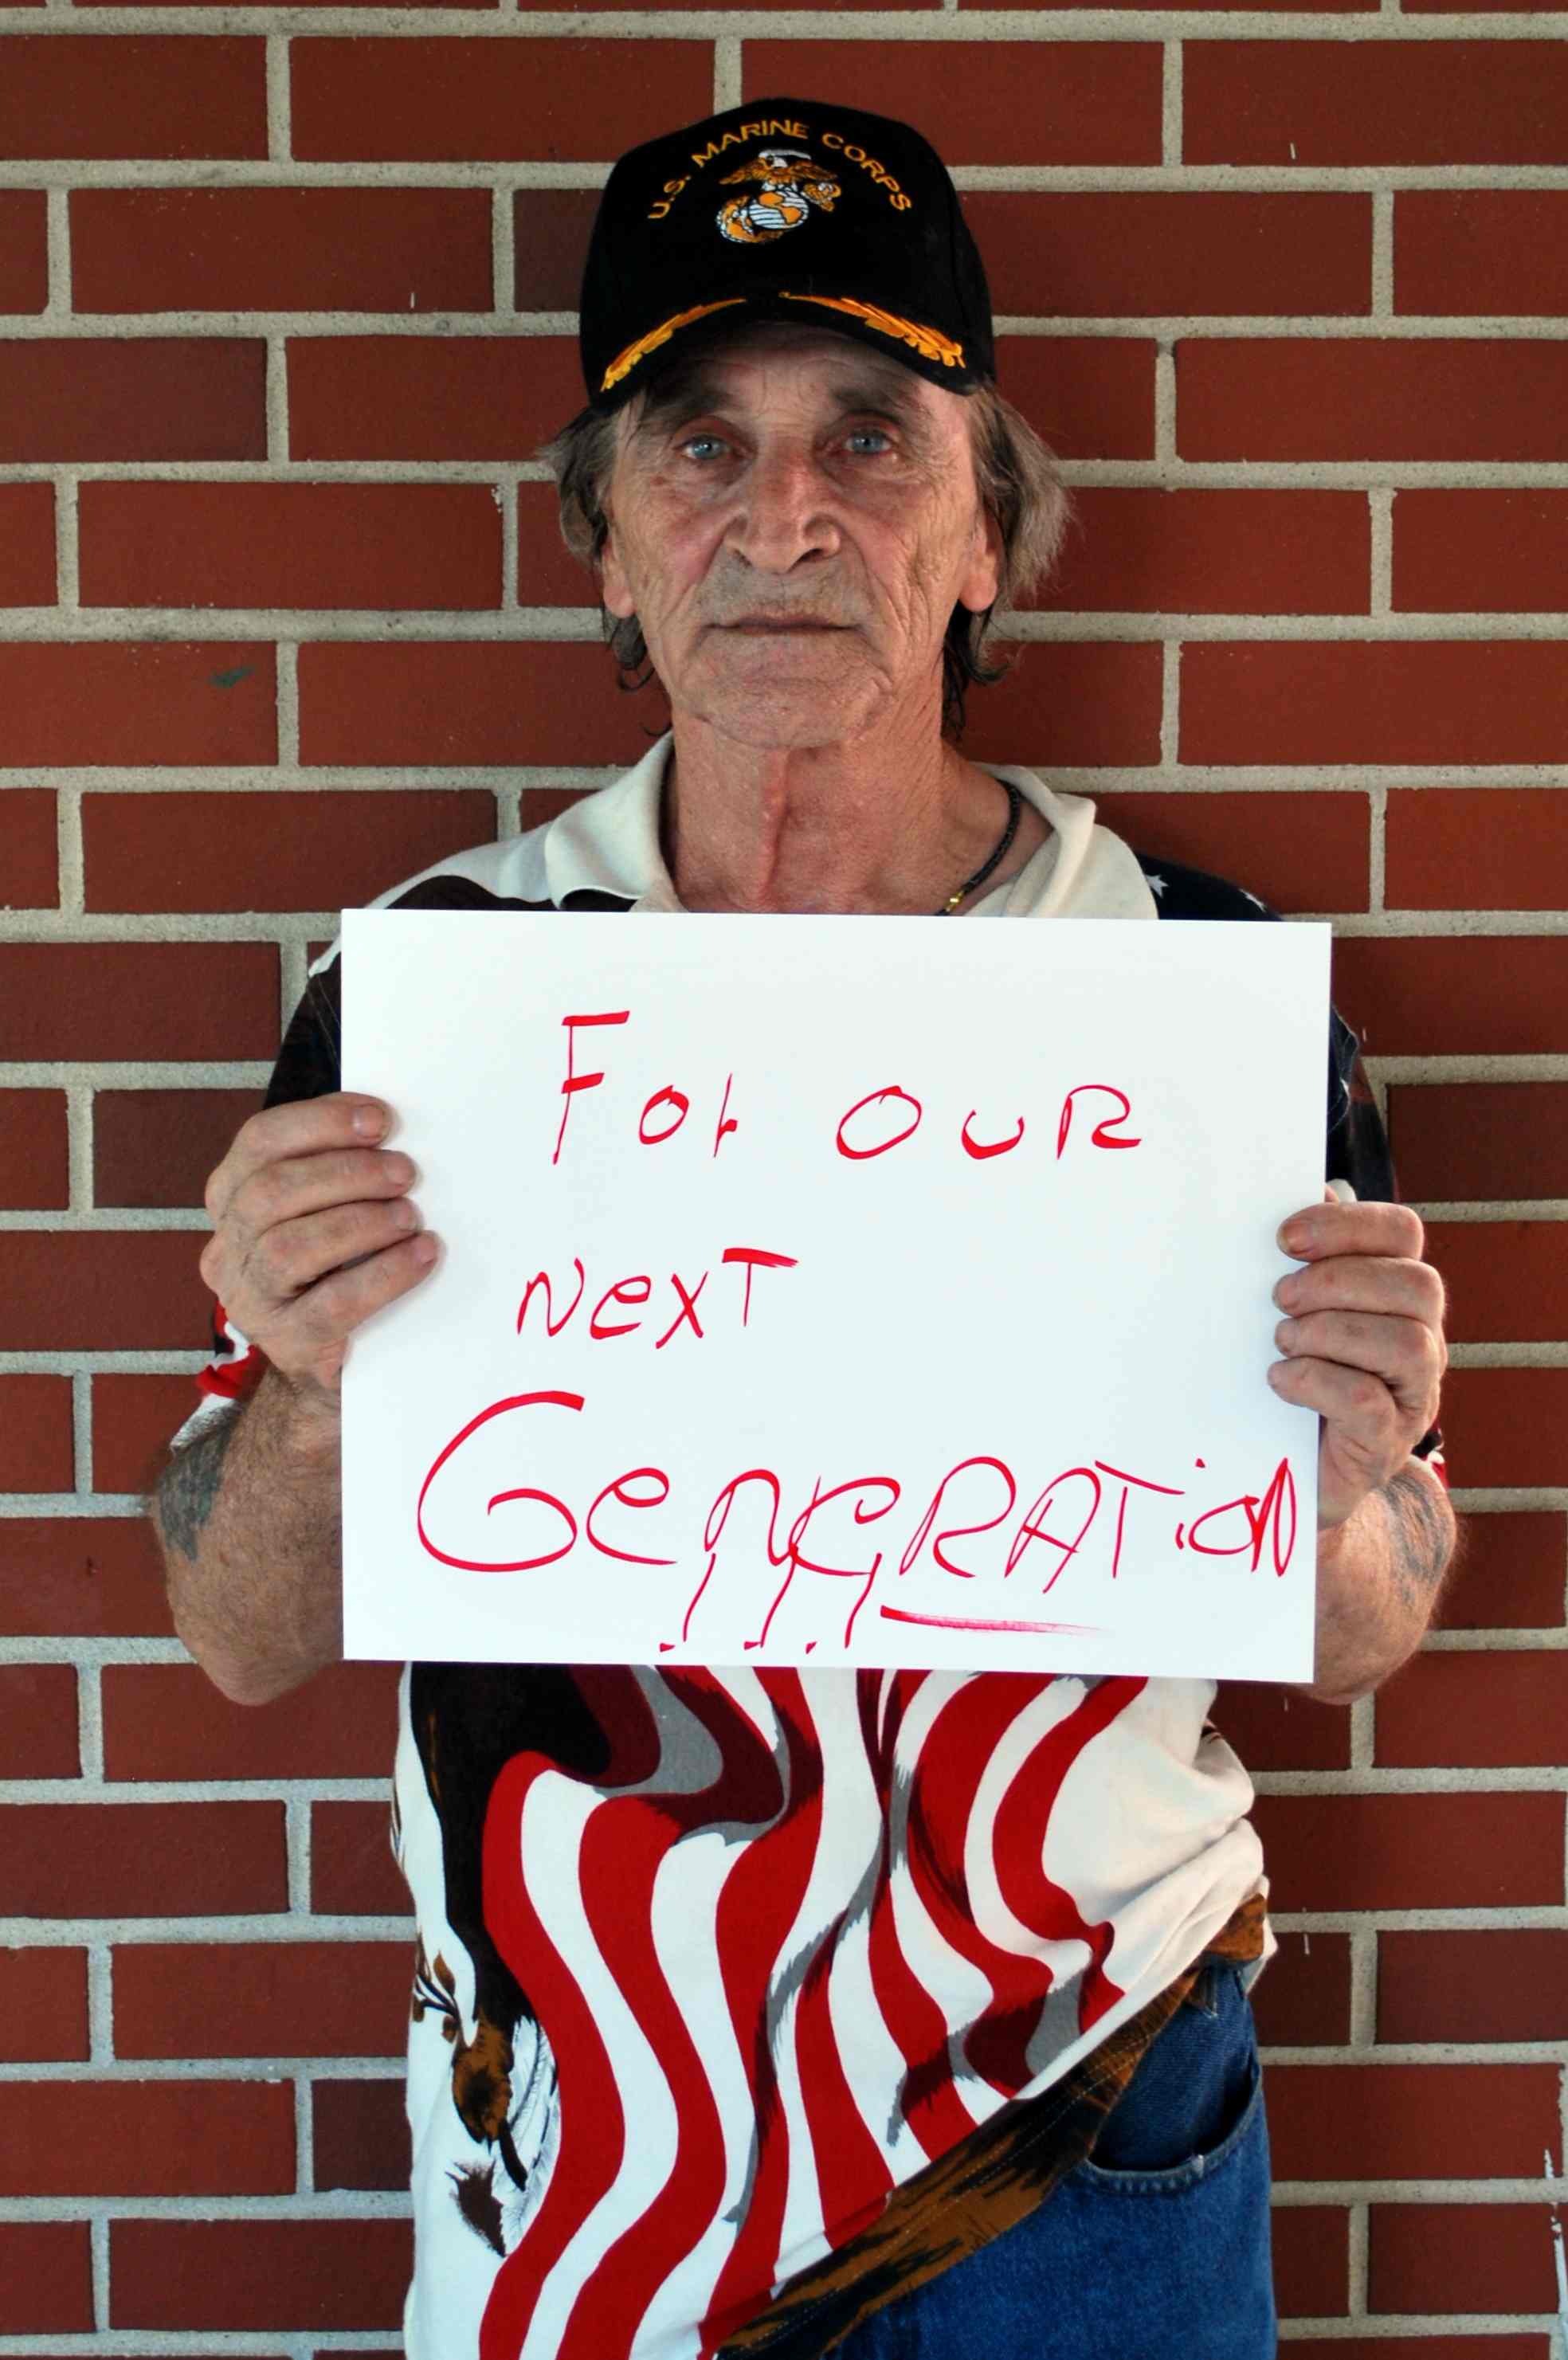 U.S. MARINE CORPS
For OUR
NexT
GeneRATiON
!!!